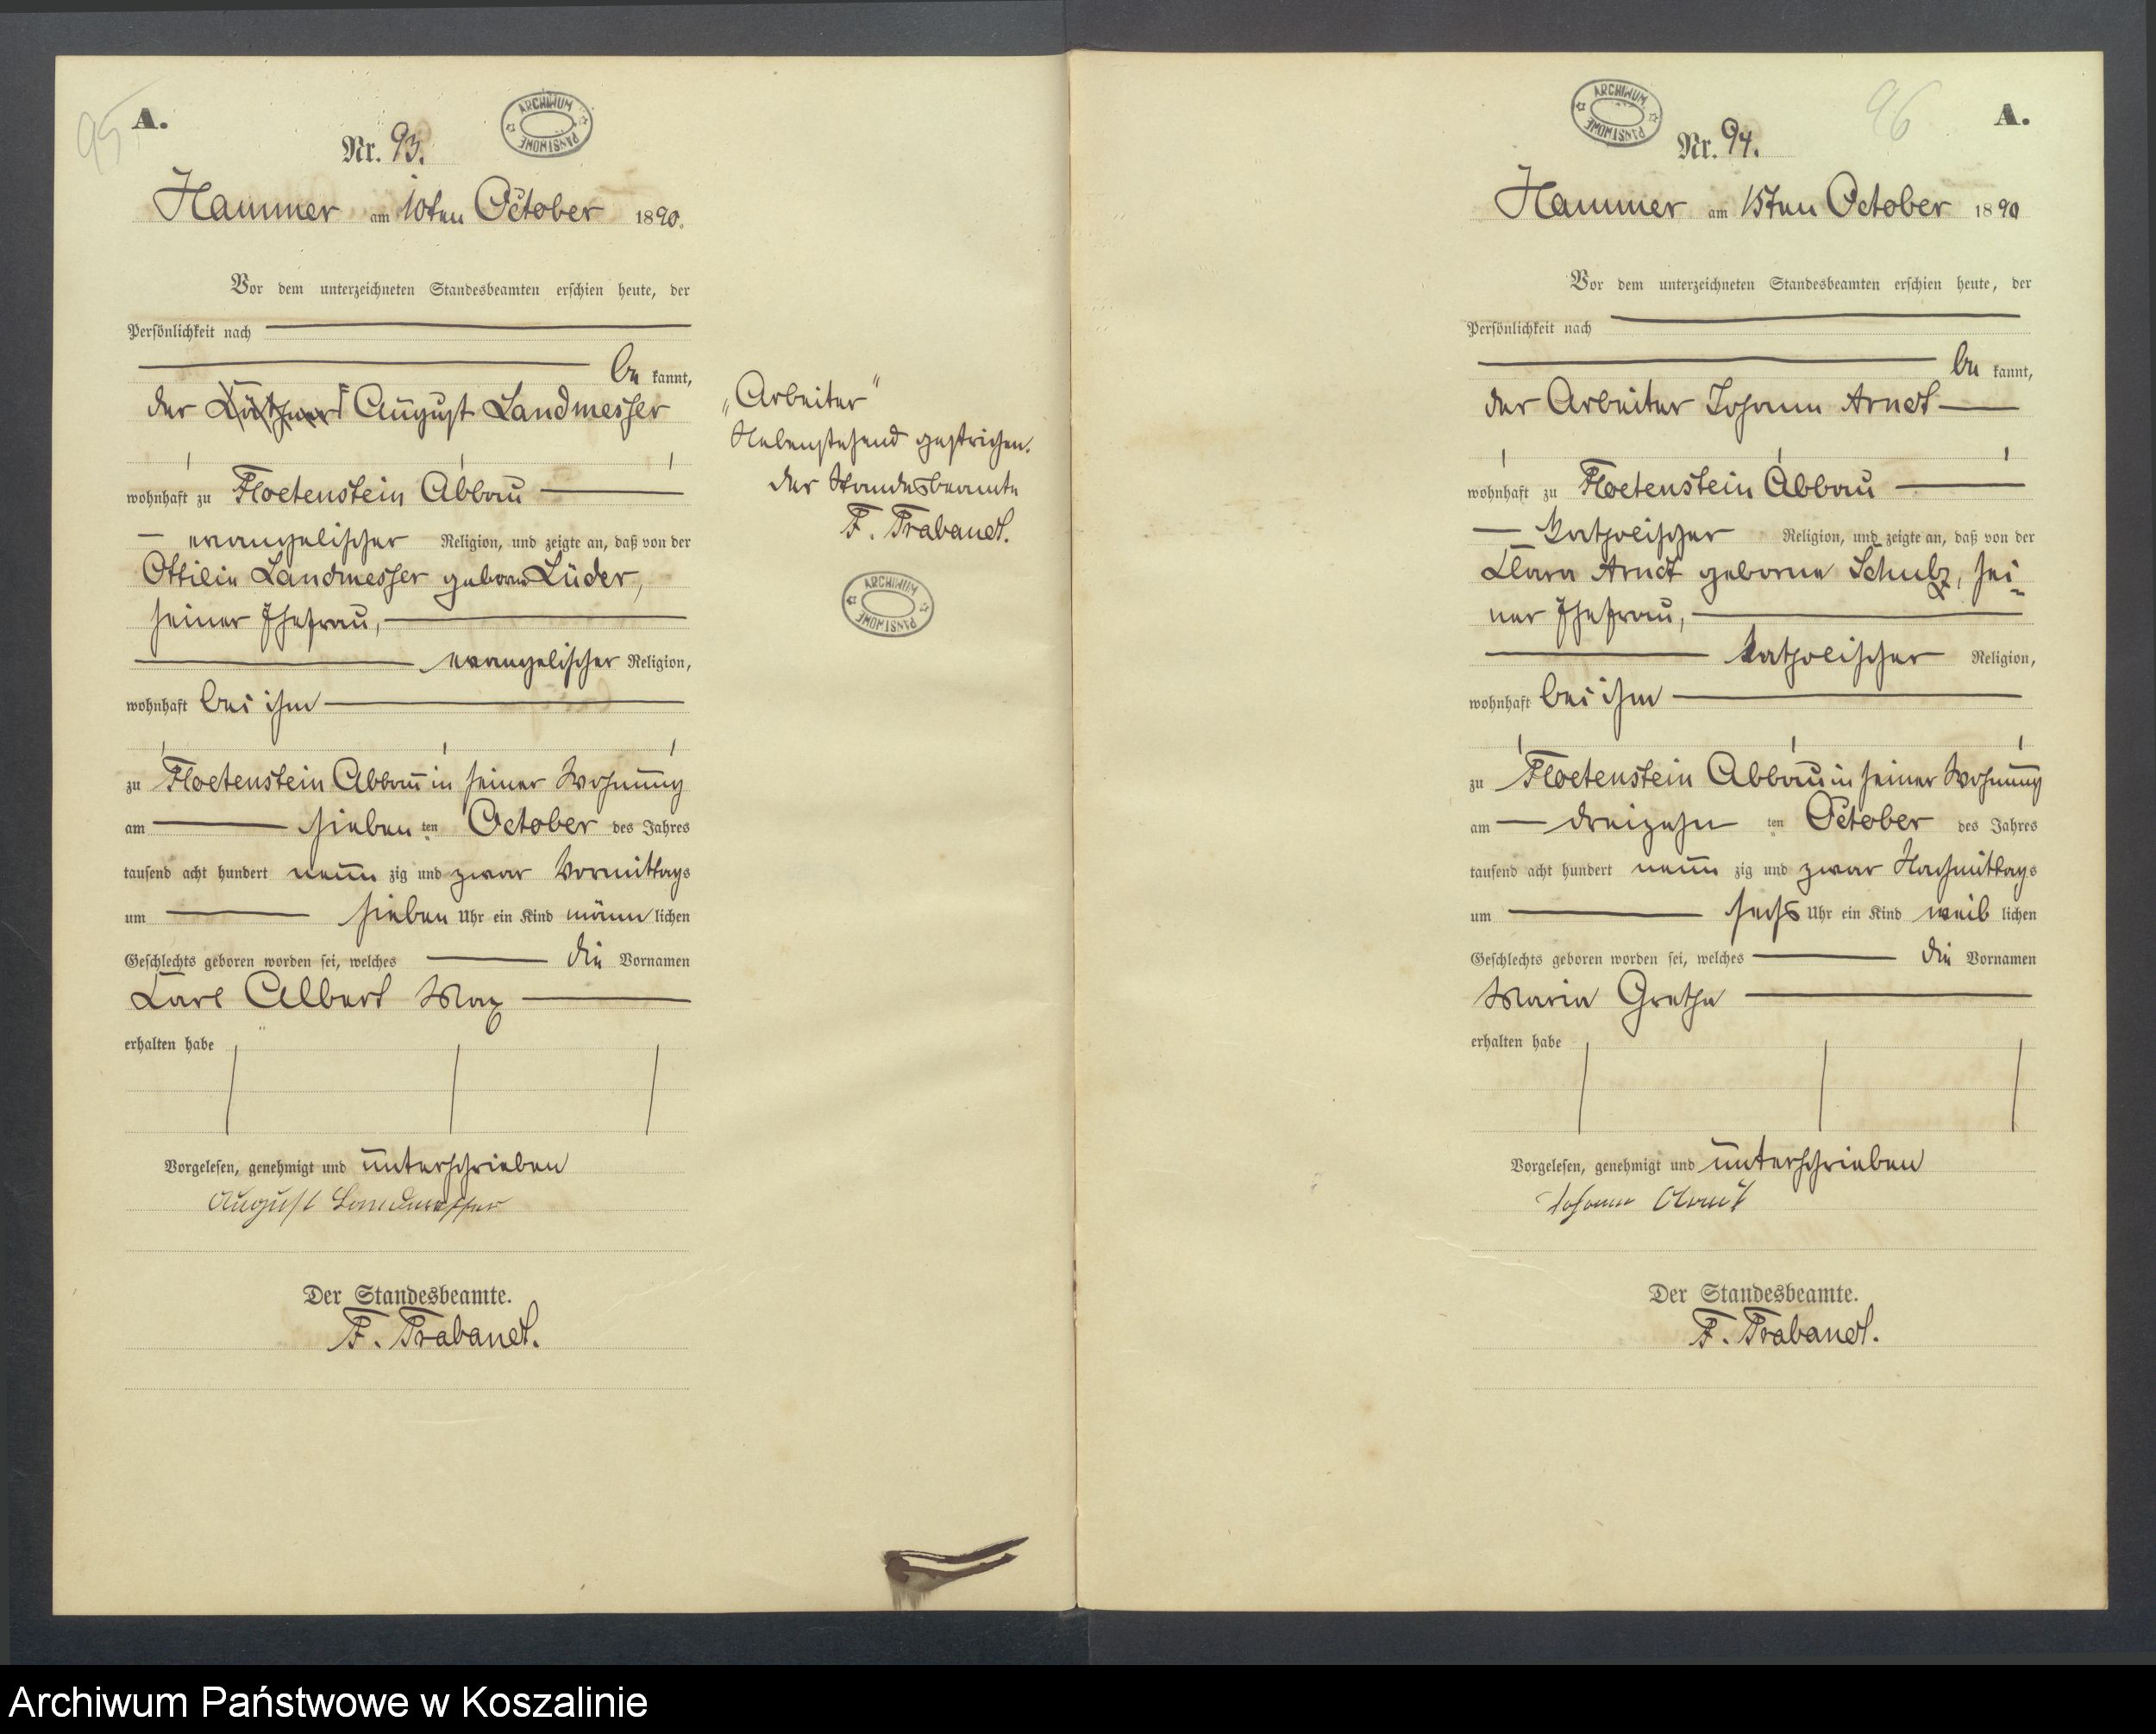 95
A.
ARCHIWUM PAŃSTWOWE
Nr. 93.
Hammer am 10ten October 1890.
Vor dem unterzeichneten Standesbeamten erschien heute, der
Persönlichkeit nach
be kannt,
der Käthner August Landmesser
wohnhaft zu Floetenstein Abbau
evangelischer Religion, und zeigte an, daß von der
Ottilie Landmesser geborne Lüder,
seiner Ehefrau,
evangelischer Religion,
wohnhaft bei ihm
zu Floetenstein Abbau in seiner Wohnung
am sieben ten October des Jahres
tausend acht hundert neun zig und zwar Vormittags
um sieben Uhr ein Kind männ lichen
Geschlechts geboren worden sei, welches die Vornamen
Carl Albert Max
erhalten habe
Vorgelesen, genehmigt und unterschrieben
August Landmesser
Der Standesbeamte.
F. Trabandt.
„Arbeiter"
Nebenstehend gestrichen.
Der Standesbeamte
F. Trabandt.
ARCHIWUM PAŃSTWOWE
ARCHIWUM PAŃSTWOWE
96
A.
Nr. 94.
Hammer am 15ten October 1890
Vor dem unterzeichneten Standesbeamten erschien heute, der
Persönlichkeit nach
be kannt,
der Arbeiter Johann Arndt
wohnhaft zu Floetenstein Abbau
katholischer Religion, und zeigte an, daß von der
Clara Arndt geborne Schulz, sei
ner Ehefrau,
katholischer Religion,
wohnhaft bei ihm
zu Floetenstein Abbau in seiner Wohnung
am dreizehn ten October des Jahres
tausend acht hundert neun zig und zwar Nachmittags
um sechs Uhr ein Kind weib lichen
Geschlechts geboren worden sei, welches die Vornamen
Maria Grethe
erhalten habe
Vorgelesen, genehmigt und unterschrieben
Johann Arndt
Der Standesbeamte.
F. Trabandt.
Archiwum Państwowe w Koszalinie